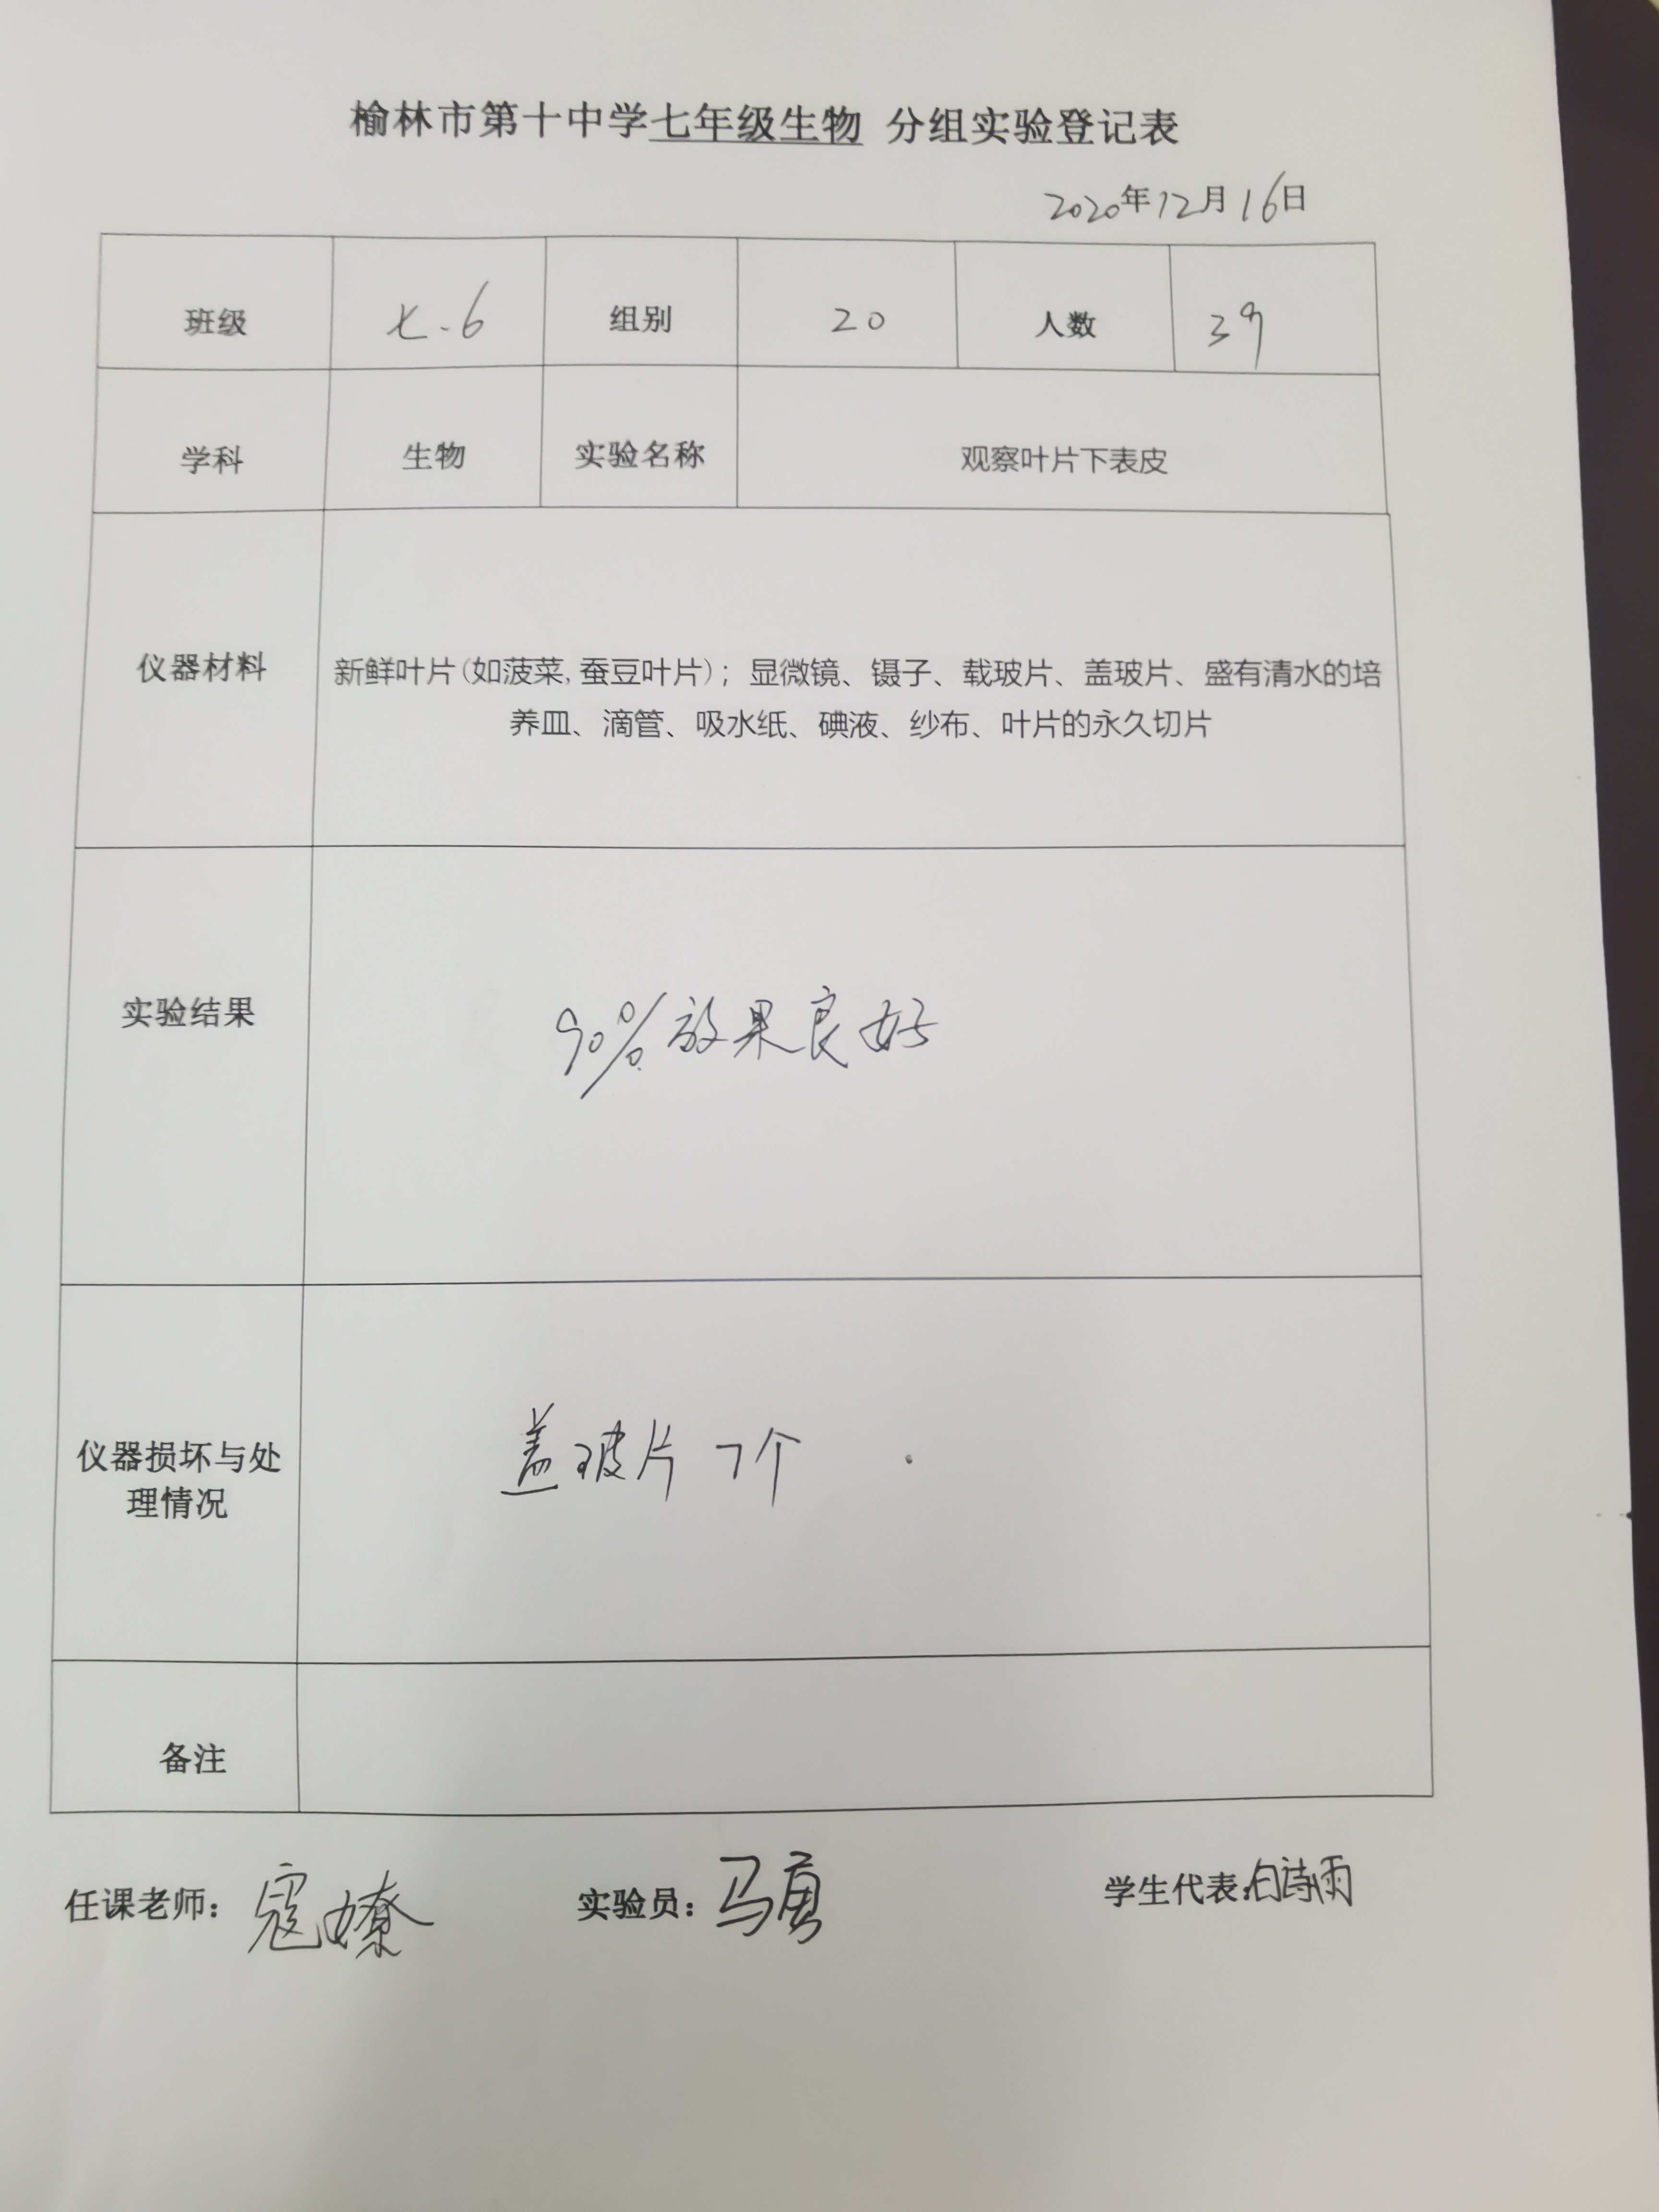 榆林市第十中学七年级生物 分组实验登记表
2020年12月16日
班级 七.6 组别 20 人数 39
学科 生物 实验名称 观察叶片下表皮
仪器材料
新鲜叶片(如菠菜,蚕豆叶片);显微镜、镊子、载玻片、盖玻片、盛有清水的培
养皿、滴管、吸水纸、碘液、纱布、叶片的永久切片
实验结果
90%效果良好
仪器损坏与处
理情况
盖玻片7个
备注
任课老师:寇嫽 实验员:马勇 学生代表:白诗雨